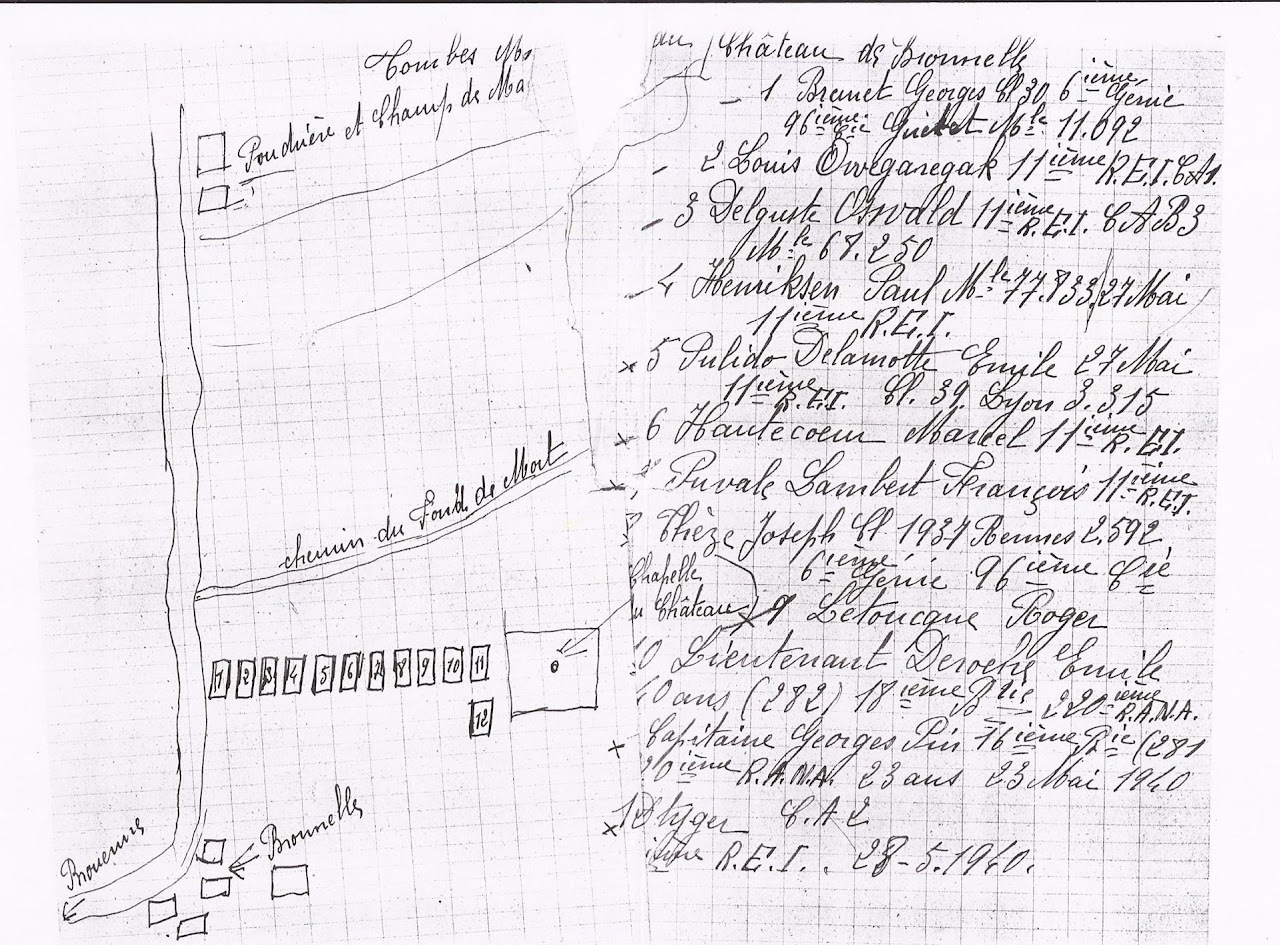 Tombes
Poudrière et Champ de Ma
chemin du Fond de Mort
Chapelle
du Château
1 2 3 4 5 6 7 8 9 10 11
12
Bronnelle
au Château de Bronnelle
- 1 Brunet Georges Cl 30 6ième Génie
96ième Cie Mle 11.092
- 2 Louis 11ième R.E.I. CA1.
- 3 Delguste Oswald 11ième R.E.I. C A B 3
Mle 67.250
- 4 Henriksen Paul Mle 77.833 27 Mai
11ième R.E.I.
x 5 Pulido Delamotte Emile 27 Mai
11ième R.E.I. Cl. 39. Lyon 3.315
x 6 Hautecoeur Marcel 11ième R.E.I.
Lambert François 11ième R.E.I.
Joseph Cl 1937 Rennes 2.592
6ième Génie 96ième Cie
x 9 Letoucque Roger
10 Lieutenant Deroche Emile
40 ans (282) 18ième Bie 220ième R.A.N.A.
x Capitaine Georges Pin 16ième Bie (281
20ième R.A.N.A. 23 ans 23 Mai 1940
x C.A 2
ième R.E.I. . 28-5.1940.